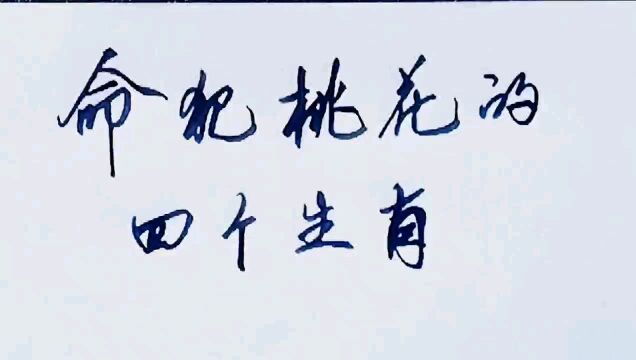 命犯桃花的
四个生肖